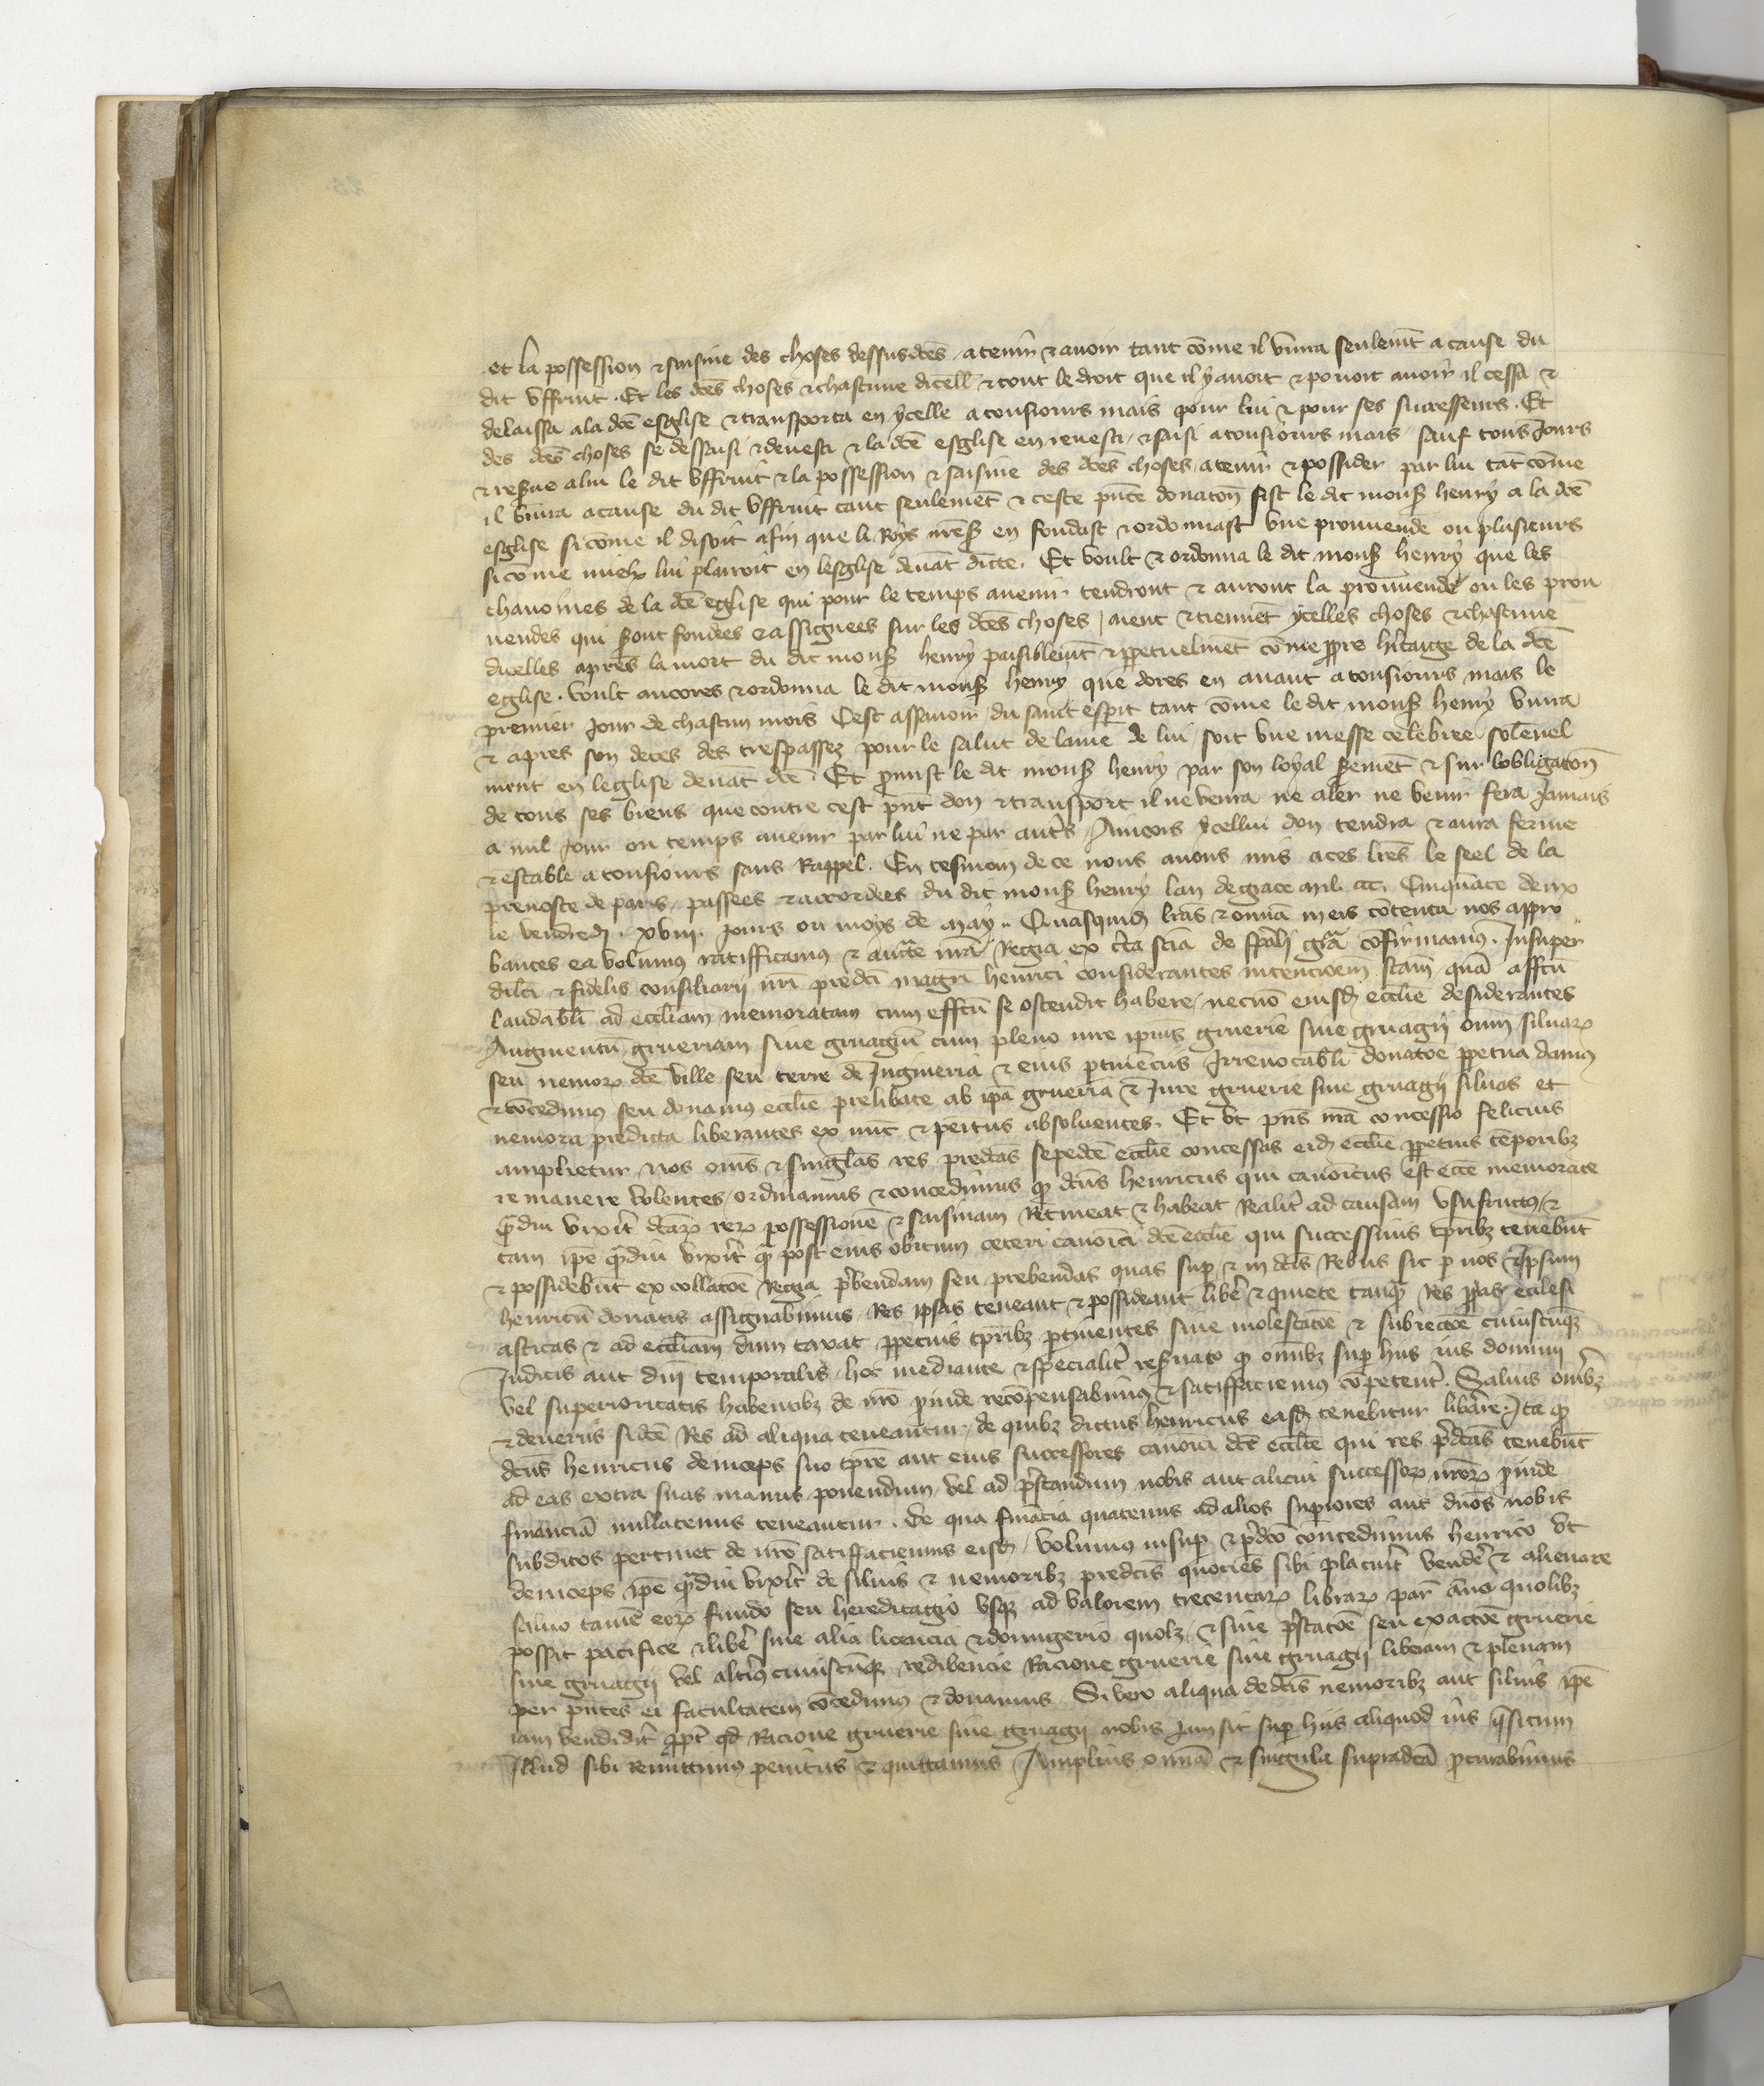 et la possession & saisine des choses dessusdc̄es / a tenir & avoir tant cōme il vivra seulemt̄ a cause du
dit vsfruit . Et les dc̄es choses & chascune dicell & tout le droit que il y avoit & povoit avoir il cessa &
delaissa a la dc̄e esglise & transporta en ycelle a tousiours mais pour lui & pour ses successeurs . Et
des dc̄es choses se dessaisi & devesti & la dc̄e esglise en revesti / & saisi a tousiours mais / sauf tous Jours
& reserve a lui le dit vsfruit & la possession & saisine des dc̄es choses / a tenir & possider par lui tāt cōme
il vivra a cause du dit vsfruit tant seulemēt & ceste pn̄te donatoñ fist le dit mons henry a la dc̄e
esglise si cōme il disoit afin que li Roys nr̄es en fondast & ordonnast vne prouuende ou plusieurs
si cōme mielx lui plairoit en lesglise devāt dicte . Et voult & ordonna le dit mons henry que les
chanoines de la dc̄e eglise qui pour le temps avenir tendront & auront la prouvende ou les prou
uendes qui seront fondees & assignees sur les dc̄es choses / aient & tiennēt ycelles choses & chascune
dicelles apres la mort du dit mons henry paisiblemt̄ & ppetuelmēt cōme ppre hītaige de la dc̄e
eglise . voult ancores & ordonna le dit mons henry que dores en avant a tousiours mais le
premier jour de chascun mois Cest assavoir du saint esperit tant cōme le dit mons henry vivra
& apres son deces des trespassez pour le salut de lame de lui / soit vne messe celebree solēnel
ment en leglise devāt dc̄e . Et pmist le dit mons henry par son loyal sermēt & sur lobligatoñ
de tous ses biens que contre cest pn̄t don & transport il ne venra ne aler ne venir fera Jamais
a nul jour ou temps avenir par lui ne par aut's Aincois ycellui don tendra & aura ferme
& estable a tousiours sans Rappel . En tesmoin de ce nous avons mis a ces lr̄es le seel de la
prevoste de paris / passees & accordees du dit mons henry lan de grace mil. ccc. Cinquāte deux
le vendredi . xviii . jours ou moys de may .. Quasquid lrās & omīa in eis cōtenta nos appro
bantes ea volumus ratifficamus & auctte nrā Regia ex cta sciā de spāli grā cōfirmamus . Insuper
dilc̄i & fidelis consiliarij nrī predc̄i magrī henrici considerantes intencioem̄ scām quā affc̄u
laudabli ad eccliam memoratam cum effc̄u se ostendit habere / necnō eiusd ecclīe desiderantes
Augmentū grueriam sive gruagiū cum pleno iure ipius gruerie sive gruagij oim̄ silvarꝝ
seu nemorꝝ dc̄e ville seu terre de Ingineria & eius ptinēciis Irrevocabli donatoē ppetua damus
& cōcedimus seu donamus ecclīe prelibate ab ipa grueria & Jure gruerie sive gruagij silvas et
nemora predicta liberantes ex nūc & penitus absolventes . Et vt pns nrā concessio felicius
amplietur nos oms & singlās res predc̄as sepedc̄e ecclīe concessas eid ecclīe ppetuis tēporibꝫ
remanere volentes / ordinamus & concedimus qꝫ dc̄us henricus qui canoicus est ecc̄e memorate
qdiu vixit dc̄arꝝ rerꝝ possessionē & saisinam Retineat & habeat Realit' ad causam vsufructus / &
tam ipe qdiu vixit qꝫ post eius obitum ceteri canoici dc̄e ecclīe qui successivis tp̄ribꝫ tenebūt
& possidebūt ex collatoē Regia pbendam seu prebendas quas sup & in dc̄is Rebus sic p nos & Ipsum
henricū donatis assignabimus . Res ipsas teneant & possideant libe & quiete tanqꝫ Res ppas ecclesi
asticas & ad eccliam dum taxat ppetuis tp̄ribꝫ ptinentes sine molestatoē & subiectoē cuiuscūqꝫ
Judicis aut dnī temporalis / hoc mediante & specialit' reservato qꝫ omibꝫ sup hiis ius dominii
vel superioritatis habentibꝫ de nrō pinde recōpensabimus & satisfaciemus cōpetent' . Salvis oneribꝫ
& deveriis si dc̄e Res ad aliqua teneantur / de quibꝫ dictus henricus easd tenebitur liberare . Ita qꝫ
dc̄us henricus deinceps suo tpre aut eius successores canoici dc̄e ecclīe qui res pdc̄as tenebūt
ad eas extra suas manus ponendum / vel ad pstandum nobis aut alicui successorꝝ nrorꝝ pinde
financiā nullatenus teneantur . de qua finācia quatenus ad alios supiores aut dnōs nobis
subditos pertinet de nrō satisfaciemus eisd / volumus insup & pdc̄o concedimus henrico vt
deinceps ipe qdiu vixit de silvis & nemoribꝫ predc̄is quociens sibi placuit vendē & alienare
salvo tamē eorꝝ fundo seu hereditagio vsqꝫ ad valorem trecentarꝝ librarꝝ par' anno quolibꝫ
possit pacifice & libe sine alia licencia & dongerio quolꝫ & sine pstatoē seu exactoē gruerie
sive gruagij vel alt'ius cuiuscūqꝫ redibencie Racione gruerie sive gruagij liberam & plenam
per pn̄tes ei facultatem cōcedimus & donamus Si vero aliqua de dc̄is nemoribꝫ aut silvis ipe
iam vendidit ppt' qd Racione gruerie sive gruagij nobis jam sit sup hiis aliquod ius qsitum
Illud sibi remittimus penitus & quittamus Amplius omīa & singula supradc̄a pcurabimus